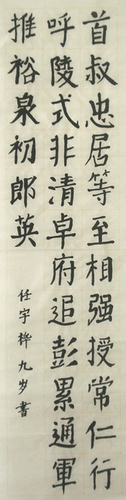 首叔忠居等至相强授常仁行
呼陵式非清卓府追彭累通軍
推裕泉初郎英
任宇桦九岁書